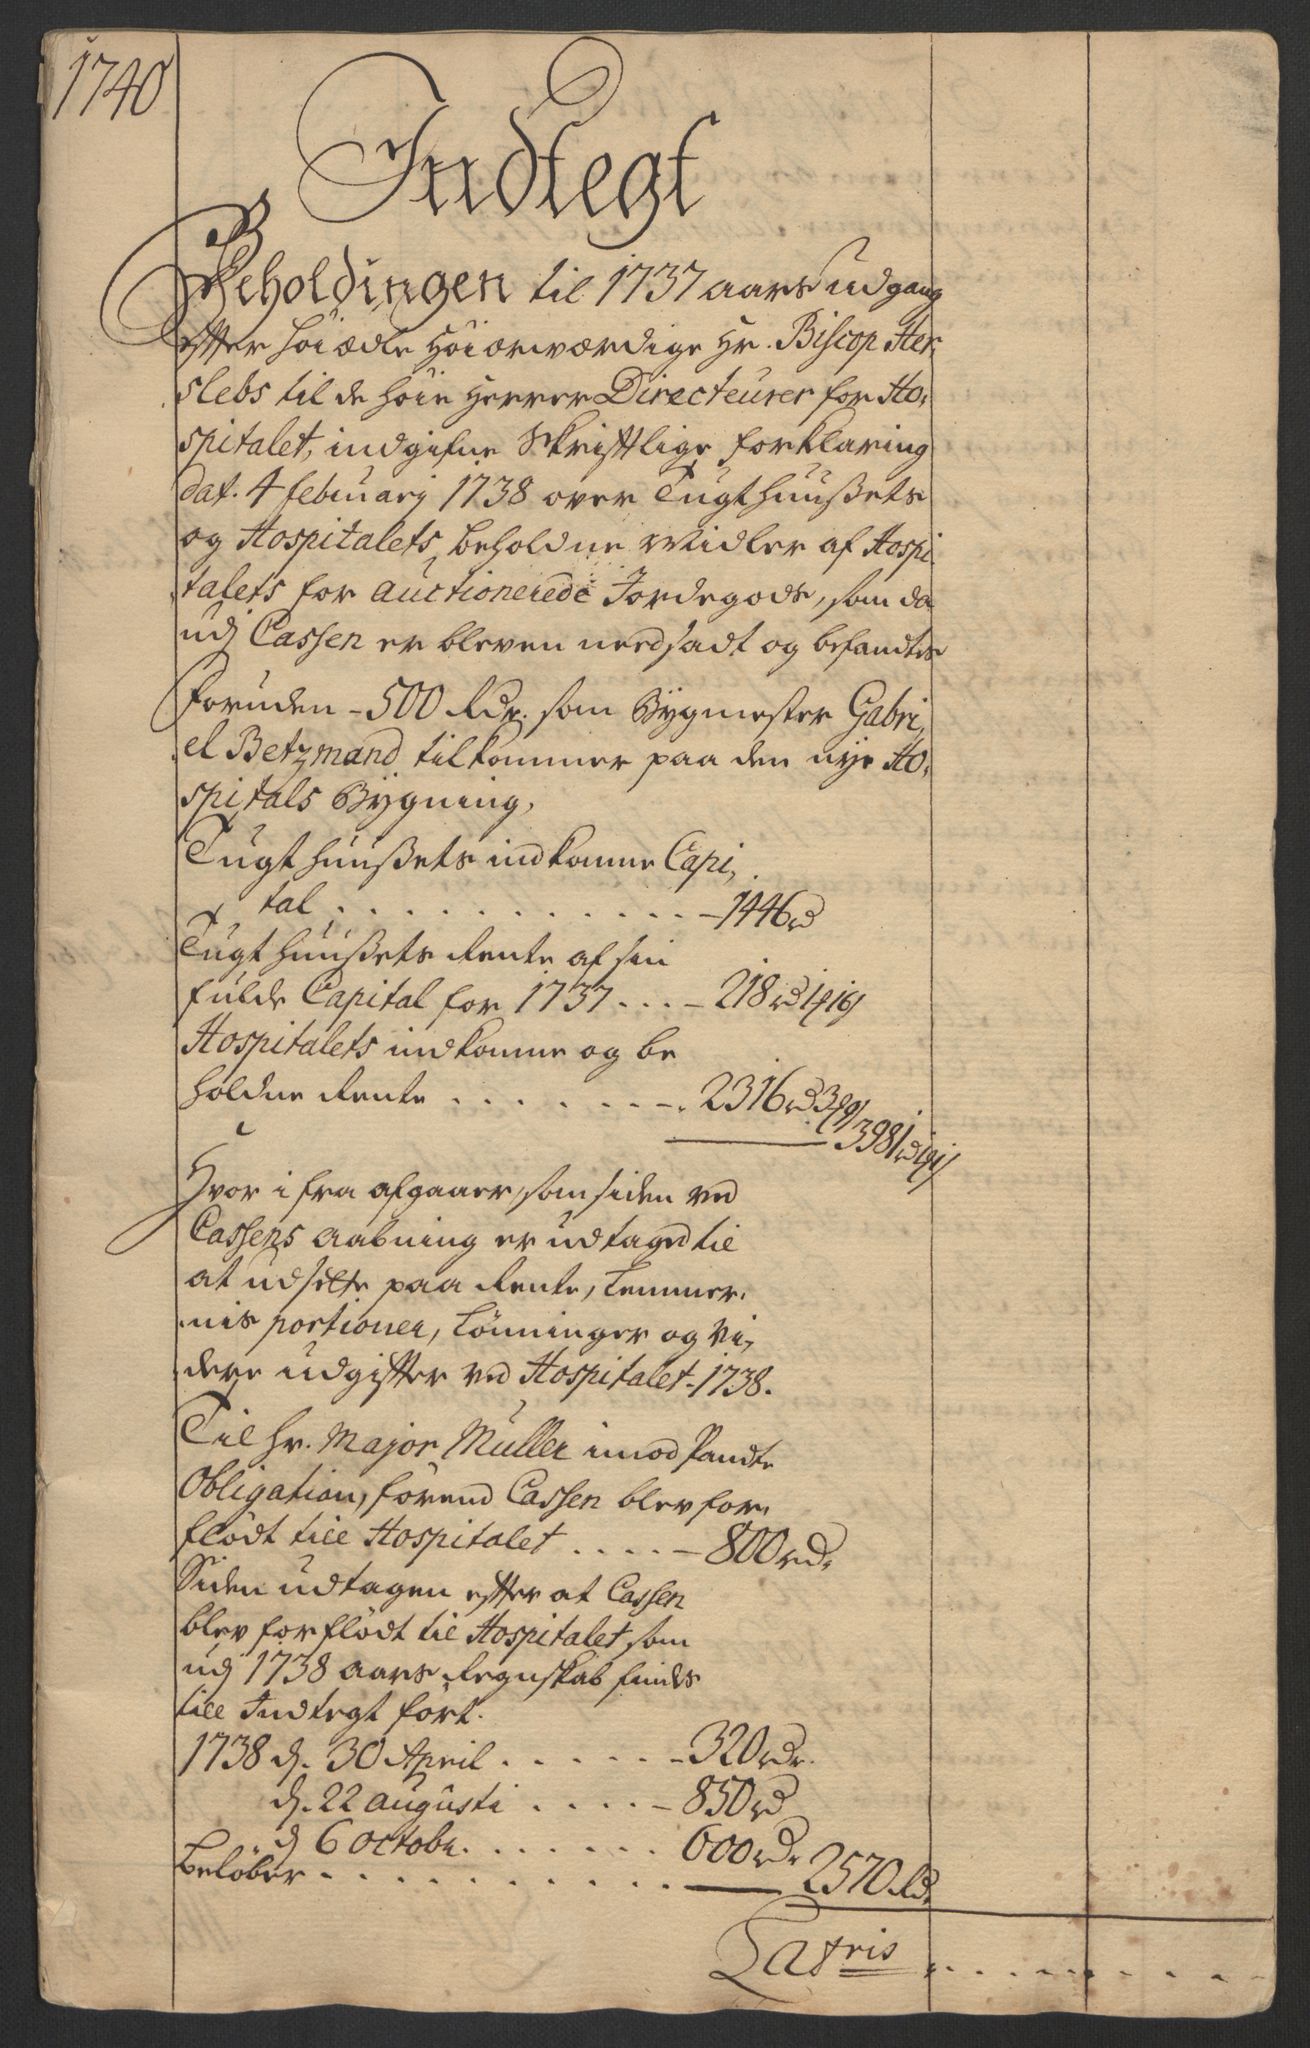 1740
Indtegt
Beholdingen til 1737 aars udgang
efter høiædle Høiærværdige Hr. Biscop Her,
slebs til de høie Herrer Directeurer for Ho,
spitalet, indgifne Skriftlige forklaring
dat. 4 februarj 1738 over Tugthuußets
og Hospitalets beholdne Midler af Hospi
talets for auctionerede Jordegods, som da
udj Cassen er bleven nedsadt og befandtes
foruden - 500 Rdr. som Bÿgmester Gabri,
el Betzmand tilkommer paa den nye Ho,
spitals Bÿgning,
Tugthuußets indkomne Capi,
tal . . . . . . . . . . . . . - 1446 rd
Tugthuußets Rente af sin
fulde Capital for 1737 . . . . - 218 rd 1 16
Hospitalets indkomne og be
holdne Rente . . . . . . . - 2316 rd 3 9
3981 rd 1 1
Hvor i fra afgaaer, som siden ved
Cassens aabning er udtaged til
at udsette paa Rente, Lemmer,
nis portioner, Lønninger og vi,
dere udgifter ved Hospitalet - 1738.
Til Hr. Major Müller imod Pandte
Obligation, førend Cassen blev for,
flødt till Hospitalet . . . . . - 800 rd.
Siden udtagen efter at Cassen
blev forflødt til Hospitalet som
udj 1738 aars Regnskab findes
till Indtegt ført.
1738 d. 30 April . . . . . . - 320 rdr.
d. 22 augusti . . . . . - 850 rd
d 6 octobr. . . . . . . . 600 rdr
Beløber . . . . . . . . . . . 2570 Rd.
Latris . . . . . . . . .